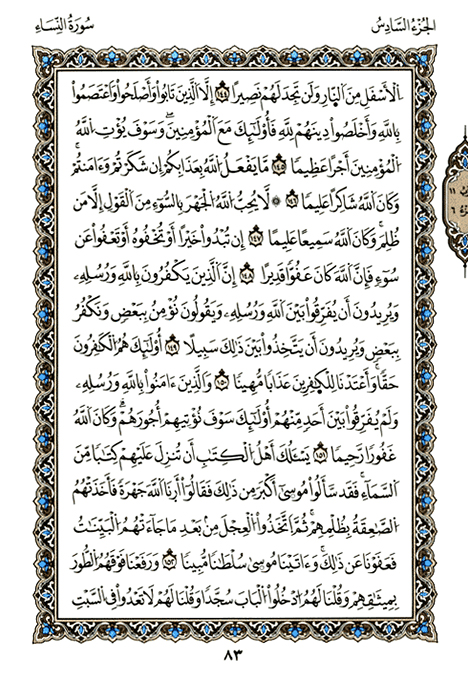 الجُزْءُ السَّادِسُ
سُورَةُ النِّسَاءِ
اِ۬لَاسْفَلِ مِنَ اَ۬لنَّارِ وَلَن تَجِدَ لَهُمْ نَصِيرًا ١٤٤ إِلَّا اَ۬لَّذِينَ تَابُوا۟ وَأَصْلَحُوا۟ وَاعْتَصَمُوا۟
بِاللَّهِ وَأَخْلَصُوا۟ دِينَهُمْ لِلَّهِ فَأُو۟لَٰٓئِكَ مَعَ اَ۬لْمُؤْمِنِينَ وَسَوْفَ يُؤْتِ اِ۬للَّهُ
اُ۬لْمُؤْمِنِينَ أَجْرًا عَظِيمًا ١٤٥ مَا يَفْعَلُ اُ۬للَّهُ بِعَذَابِكُمْ إِن شَكَرْتُمْ وَءَامَنتُمْ
وَكَانَ اَ۬للَّهُ شَاكِرًا عَلِيمًا ١٤٦ ۞ لَا يُحِبُّ اُ۬للَّهُ اُ۬لْجَهْرَ بِالسُّوٓءِ مِنَ اَ۬لْقَوْلِ إِلَّا مَن
ظُلِمَ وَكَانَ اَ۬للَّهُ سَمِيعًا عَلِيمًا ١٤٧ إِن تُبْدُوا۟ خَيْرًا أَوْ تُخْفُوهُ أَوْ تَعْفُوا۟ عَن
سُوٓءٍ فَإِنَّ اَ۬للَّهَ كَانَ عَفُوًّا قَدِيرًا ١٤٨ إِنَّ اَ۬لَّذِينَ يَكْفُرُونَ بِاللَّهِ وَرُسُلِهِۦ
وَيُرِيدُونَ أَن يُفَرِّقُوا۟ بَيْنَ اَ۬للَّهِ وَرُسُلِهِۦ وَيَقُولُونَ نُؤْمِنُ بِبَعْضٍ وَنَكْفُرُ
بِبَعْضٍ وَيُرِيدُونَ أَن يَتَّخِذُوا۟ بَيْنَ ذَٰلِكَ سَبِيلًا ١٤٩ أُو۟لَٰٓئِكَ هُمُ اُ۬لْكَٰفِرُونَ
حَقًّا وَأَعْتَدْنَا لِلْكَٰفِرِينَ عَذَابًا مُّهِينًا ١٥٠ وَالَّذِينَ ءَامَنُوا۟ بِاللَّهِ وَرُسُلِهِۦ
وَلَمْ يُفَرِّقُوا۟ بَيْنَ أَحَدٍ مِّنْهُمْ أُو۟لَٰٓئِكَ سَوْفَ نُؤْتِيهِمْ أُجُورَهُمْ وَكَانَ اَ۬للَّهُ
غَفُورًا رَّحِيمًا ١٥١ يَسْـَٔلُكَ أَهْلُ اُ۬لْكِتَٰبِ أَن تُنزِلَ عَلَيْهِمْ كِتَٰبًا مِّنَ
اَ۬لسَّمَآءِ فَقَدْ سَأَلُوا۟ مُوسَىٰٓ أَكْبَرَ مِن ذَٰلِكَ فَقَالُوٓا۟ أَرْنَا اَ۬للَّهَ جَهْرَةً فَأَخَذَتْهُمُ
اُ۬لصَّٰعِقَةُ بِظُلْمِهِمْ ثُمَّ اَ۪تَّخَذُوا۟ اُ۬لْعِجْلَ مِنۢ بَعْدِ مَا جَآءَتْهُمُ اُ۬لْبَيِّنَٰتُ
فَعَفَوْنَا عَن ذَٰلِكَ وَءَاتَيْنَا مُوسَىٰ سُلْطَٰنًا مُّبِينًا ١٥٢ وَرَفَعْنَا فَوْقَهُمُ اُ۬لطُّورَ
بِمِيثَٰقِهِمْ وَقُلْنَا لَهُمُ اُ۟دْخُلُوا۟ اُ۬لْبَابَ سُجَّدًا وَقُلْنَا لَهُمْ لَا تَعْدُوا۟ فِي اِ۬لسَّبْتِ
٨٣